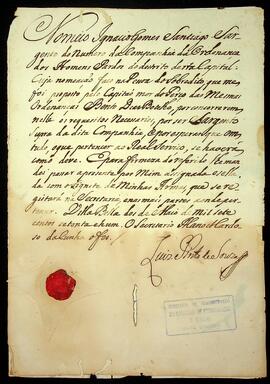 Nomeio Ignacio Gomes Santiago Sar
gento do Numero da Companhia da Ordenança
dos Homens Pardos do destrito desta Capital.
Cuja nomeação faço na Pessoa do sobredito, que me
foi proposto pelo Capitaõ mor do Terço das Mesmas
Ordenanças por concorrerem
nelle os requezitos Necessarios, por ser
da dita Companhia, E por esperar que em
tudo, o que pertencer ao Real Serviço, se haverá
como deve. E para firmeza do referido lhe man
dei passar a prezente por Mim assignada e sella
da com o Signete de Minhas Armas, que se re
gistará na Secretaria, e nas mais partes aonde per
tencer. Villa Rica dos de Maio de mil sete
centos setenta e hum. O Secretario Cardo
so da Cunha o fes.
Luiz de Souza